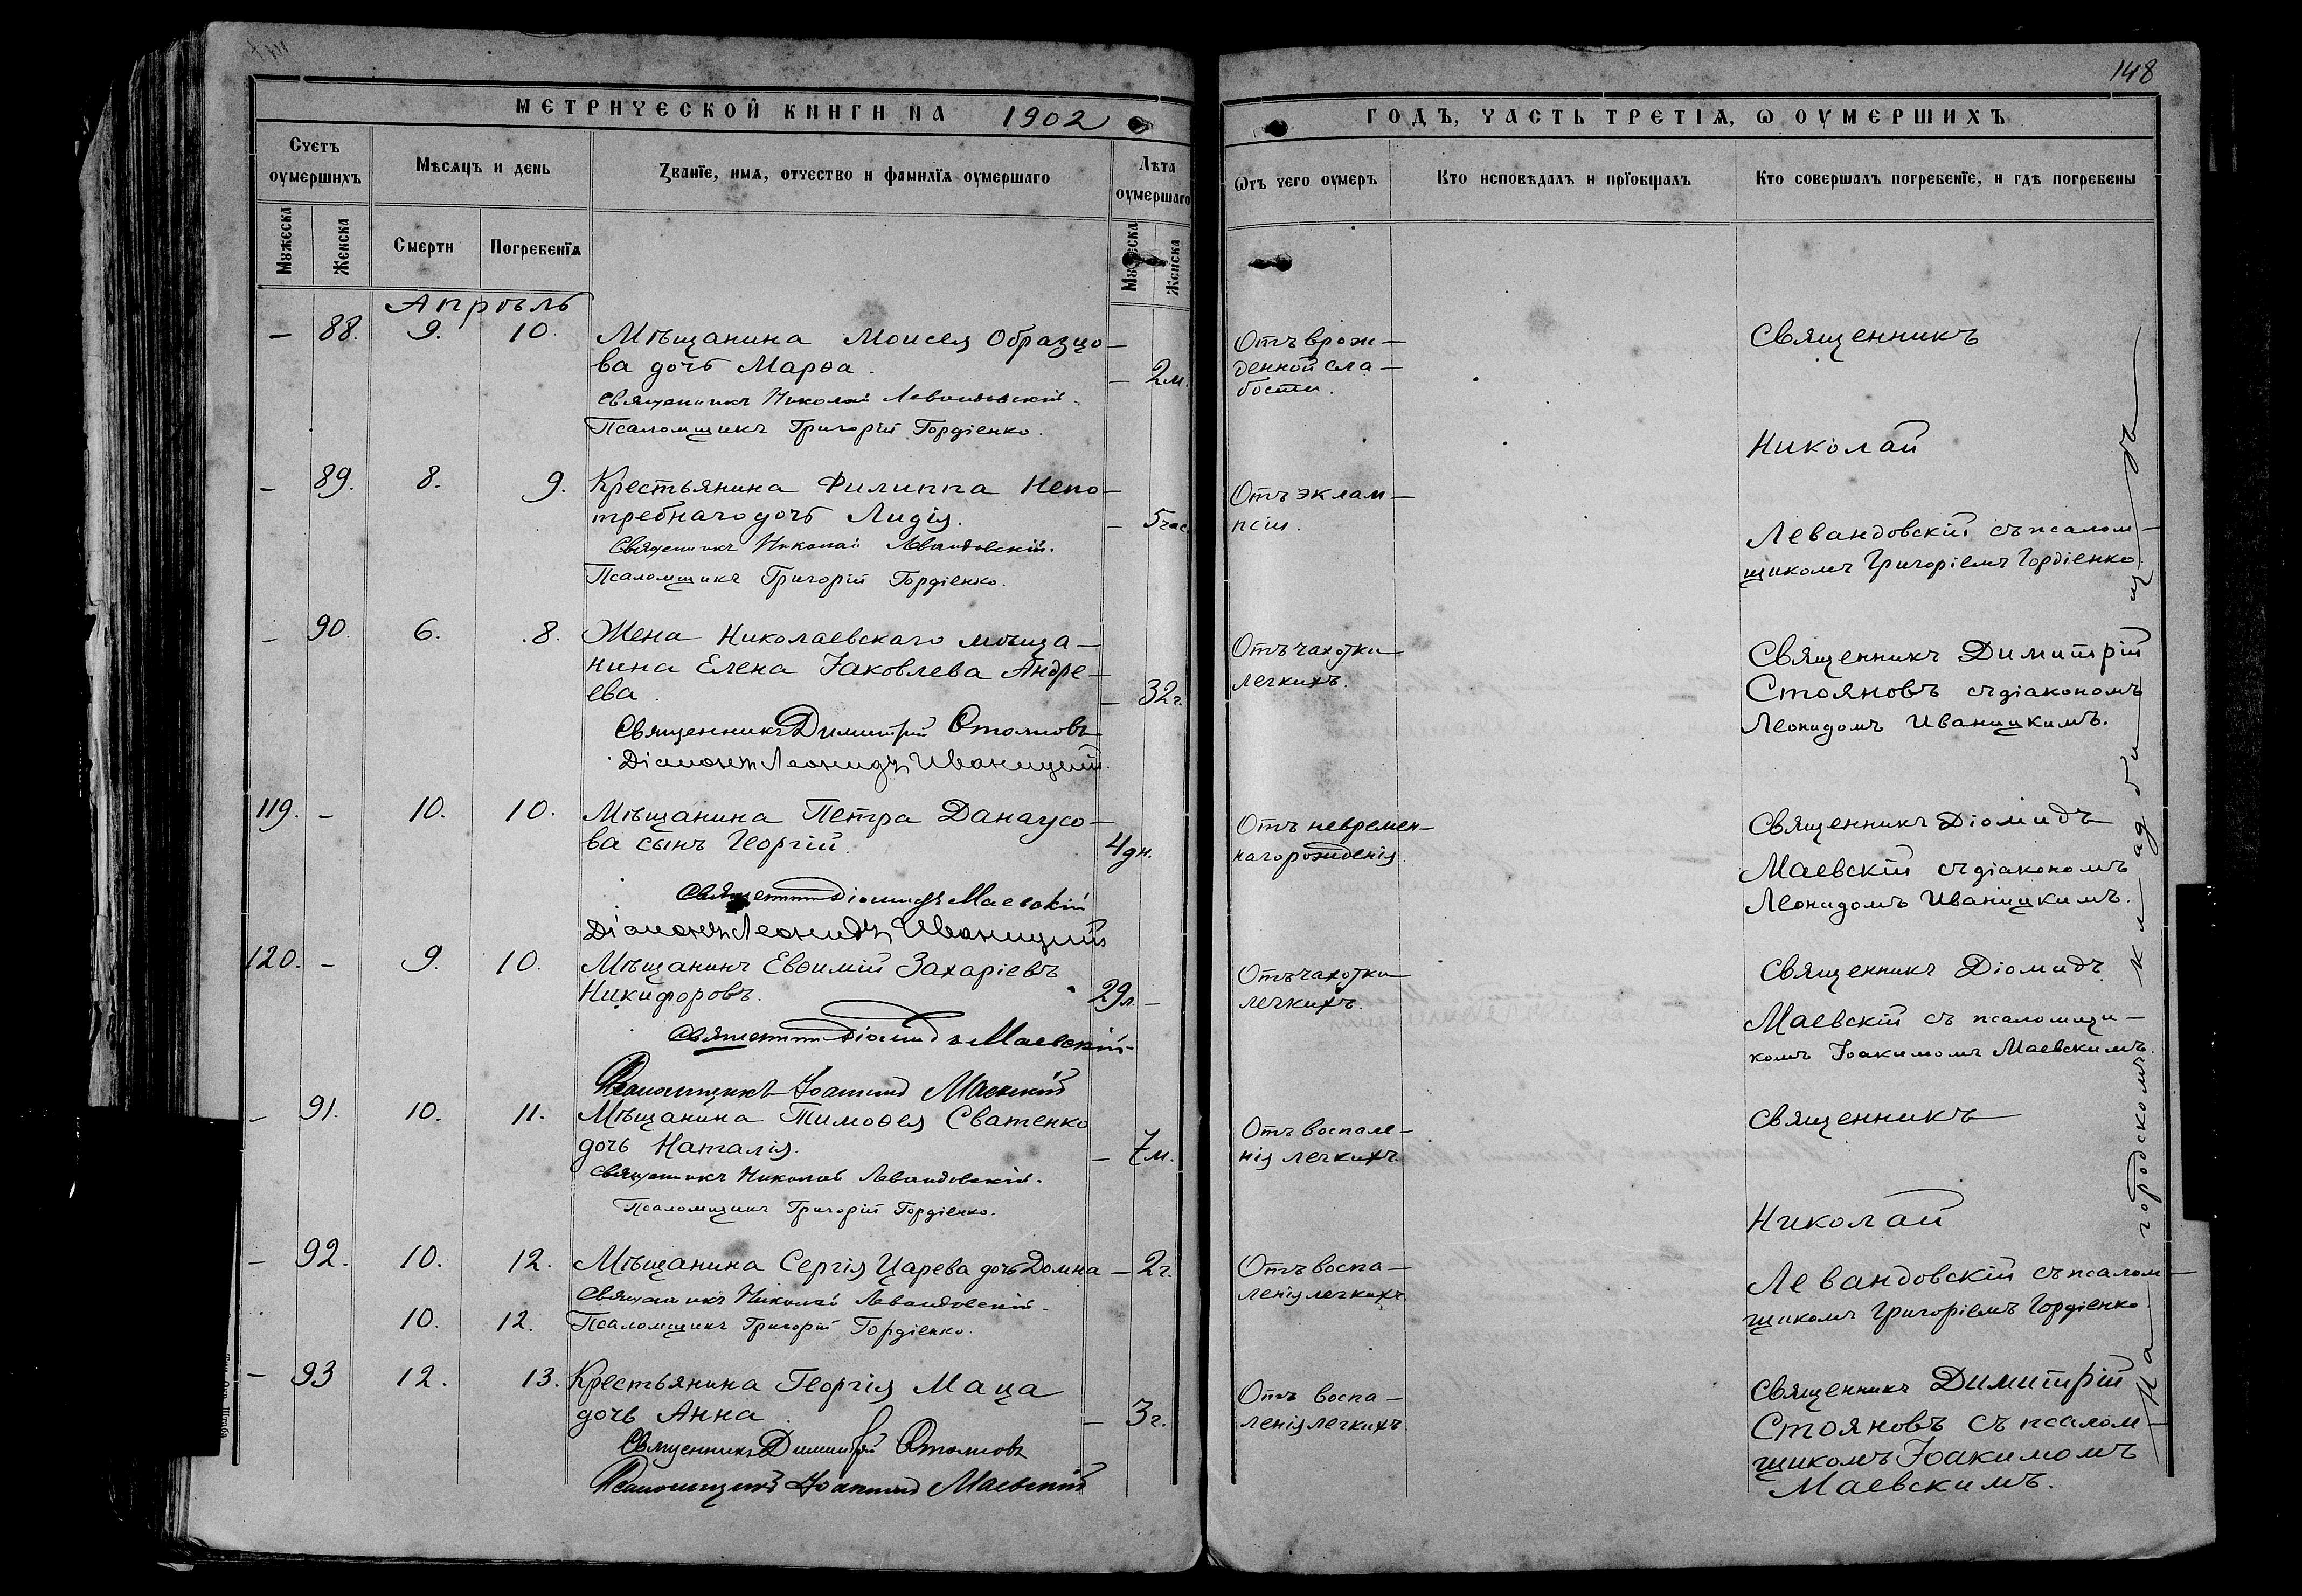 148
МЕТРИЧЕСКОЙ КНИГИ НА 1902
ГОДЪ, ЧАСТЬ ТРЕТІѦ, Ѡ ОУМЕРШИХЪ
Счетъ оумершихъ
Мѣсѧцъ и день
Званїе, имѧ, отчество и фамилїѧ оумершаго
Лѣта оумершаго
Ѿтъ чего оумеръ
Кто исповѣдалъ и прїобщалъ
Кто совершалъ погребенїе, и гдѣ погребены
Мꙋжеска
Женска
Смерти
Погребенїѧ
Мꙋжеска
Женска
Апрѣль
— 88. 9. 10. Мѣщанина Моисея Образцо-
ва дочь Марѳа. — 2 м.
Священникъ Николай Левандовскій.
Псаломщикъ Григорій Гордіенко.
Отъ врож-
денной сла-
бости.
Священникъ
Николай
— 89. 8. 9. Крестьянина Филиппа Непо-
требнаго дочь Лидія. — 5 час
Священникъ Николай Левандовскій.
Псаломщикъ Григорій Гордіенко.
Отъ эклам-
псіи.
Левандовскій съ псалом-
щикомъ Григоріемъ Гордіенко
— 90. 6. 8. Жена Николаевскаго мѣща-
нина Елена Іаковлева Андре-
ева. — 32 г.
Священникъ Димитрій Стояновъ
Діаконъ Леонидъ Иваницкій.
Отъ чахотки
легкихъ.
Священникъ Димитрій
Стояновъ съ діакономъ
Леонидомъ Иваницкимъ.
119. — 10. 10. Мѣщанина Петра Данаусо-
ва сынъ Георгій. 4 дн.
Священникъ Діомидъ Маевскій
Діаконъ Леонидъ Иваницкій
Отъ невремен-
наго рожденія.
Священникъ Діомидъ
Маевскій съ діакономъ
Леонидомъ Иваницкимъ.
120. — 9. 10. Мѣщанинъ Евѳимій Захаріевъ
Никифоровъ. 29 л. —
Священникъ Діомидъ Маевскій
Псаломщикъ Іоакимъ Маевскій
Отъ чахотки
легкихъ.
Священникъ Діомидъ
Маевскій съ псаломщи-
комъ Іоакимомъ Маевскимъ.
— 91. 10. 11. Мѣщанина Тимоѳея Сватенко
дочь Наталія. — 7 м.
Священникъ Николай Левандовскій.
Псаломщикъ Григорій Гордіенко.
Отъ воспале-
нія легкихъ.
Священникъ
Николай
— 92. 10. 12. Мѣщанина Сергія Царева дочь Домна — 2 г.
Священникъ Николай Левандовскій.
10. 12. Псаломщикъ Григорій Гордіенко.
Отъ воспа-
ленія легкихъ.
Левандовскій съ псалом-
щикомъ Григоріемъ Гордіенко
— 93 12. 13. Крестьянина Георгія Маца
дочь Анна. — 3 г.
Священникъ Димитрій Стояновъ
Псаломщикъ Іоакимъ Маевскій
Отъ воспа-
ленія легкихъ
Священникъ Димитрій
Стояновъ съ псалом-
щикомъ Іоакимомъ
Маевскимъ.
На городскомъ кладбищѣ